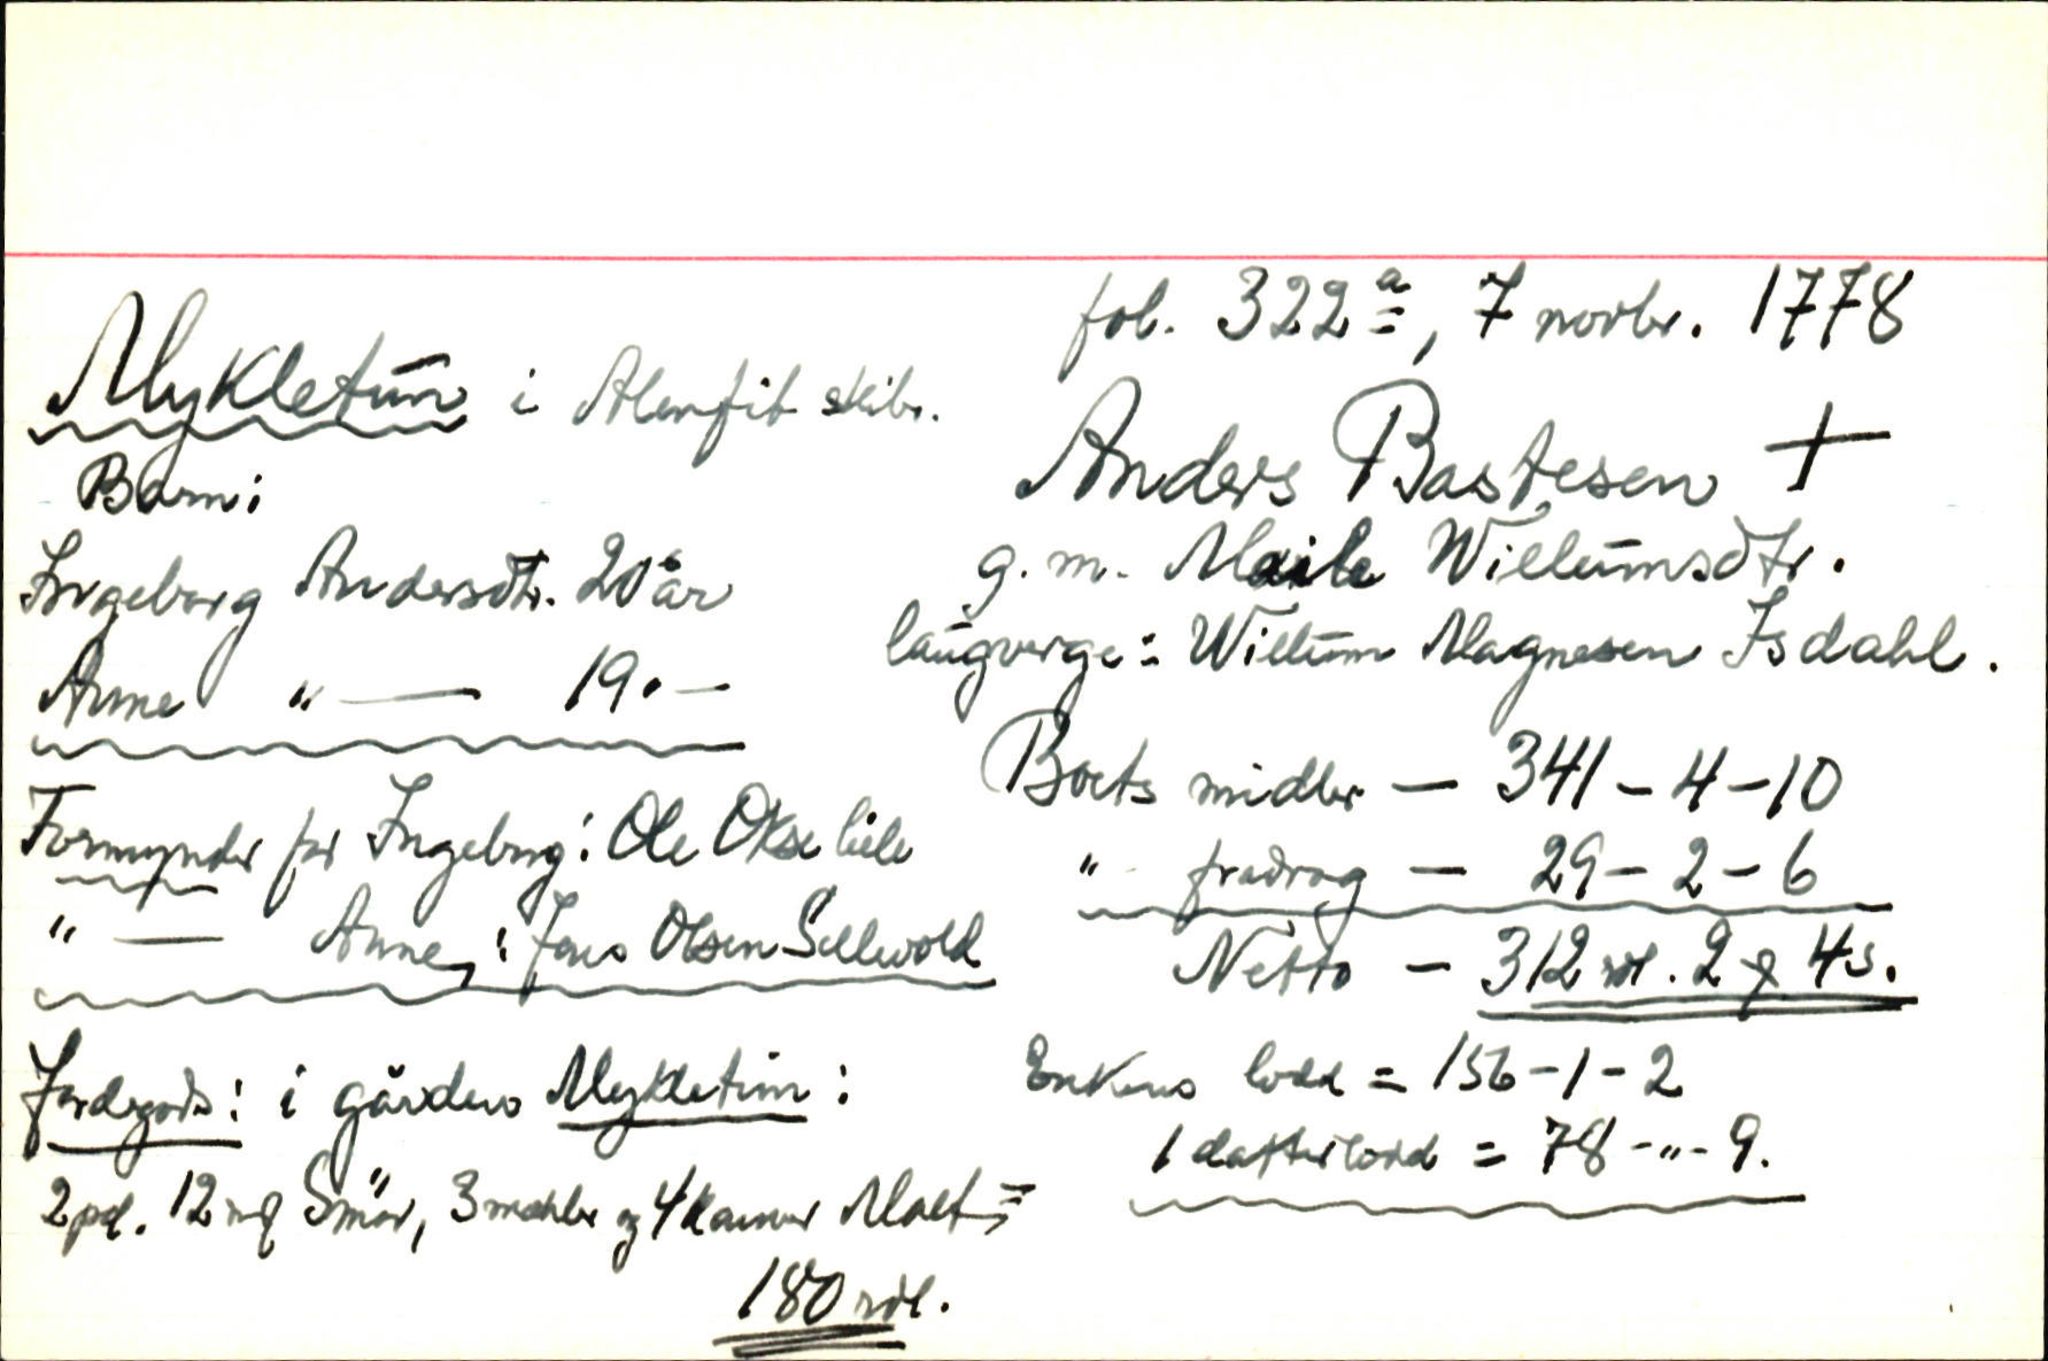 fol. 322a, 7 novbr. 1778
Mykletun i Alenfit skibr.
Anders Bastesen +
Barn:
g. m. Marte Willumsdtr.
Ingeborg Andersdtr. 20 år
laugverge: Willum Magnesen Isdahl.
Anne " — 19.—
Boets midler — 341 – 4 – 10
Formynder for Ingeborg: Ole Okse
" fradrag — 29 – 2 – 6
" — Anne,: Jens Olsen Sellevold
Netto — 312 rdl. 2 ƒ 4 s.
Jordegods: i gården Mykletun:
Enkens lodd = 156 – 1 – 2
1 datterlodd = 78 – " – 9.
2 pd. 12 mƒ Smör, 3 mæhler og 4 kanner Malt =
180 rdl.